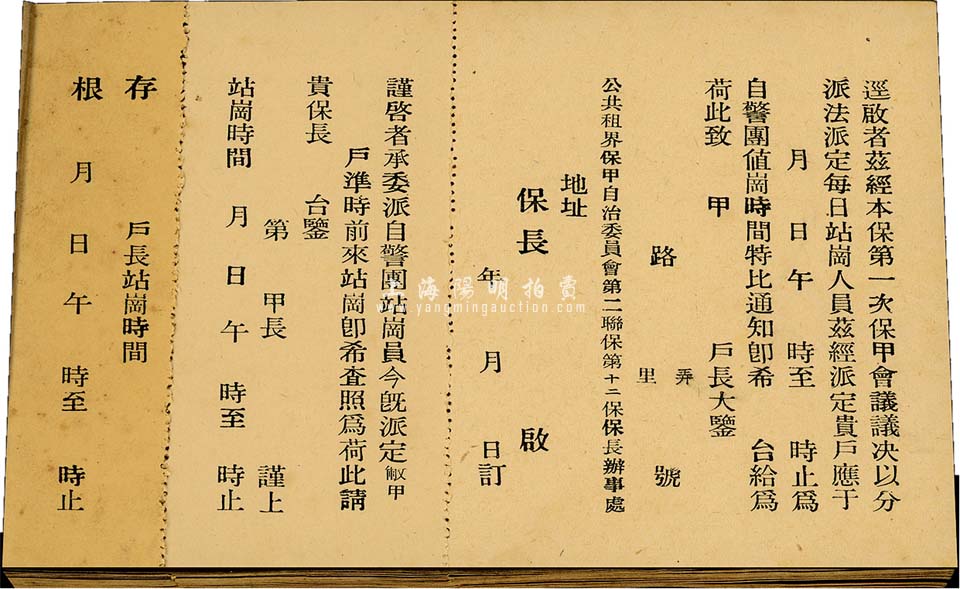 逕啟者茲經本保第一次保甲會議議決以分
派法派定每日站崗人員茲經派定貴戶應于
月 日 午 時至 時止爲
自警團値崗時間特比通知卽希 台給爲
荷此致 甲 戶長大鑒
路 弄 號
里
公共租界保甲自治委員會第二聯保第十二保保長辦事處
地址
保長 啟
年 月 日訂
謹啓者承委派自警團站崗員今旣派定敝甲
戶準時前來站崗卽希查照爲荷此請
貴保長 台鑒
第 甲長 謹上
站崗時間 月 日 午 時至 時止
存根
戶長站崗時間
月 日 午 時至 時止
上海陽明拍賣
www.yangmingauction.com